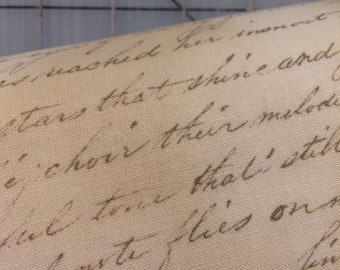 reached her inmost
stars that shine and
choir their melodi
ful tone that's still
note flies on